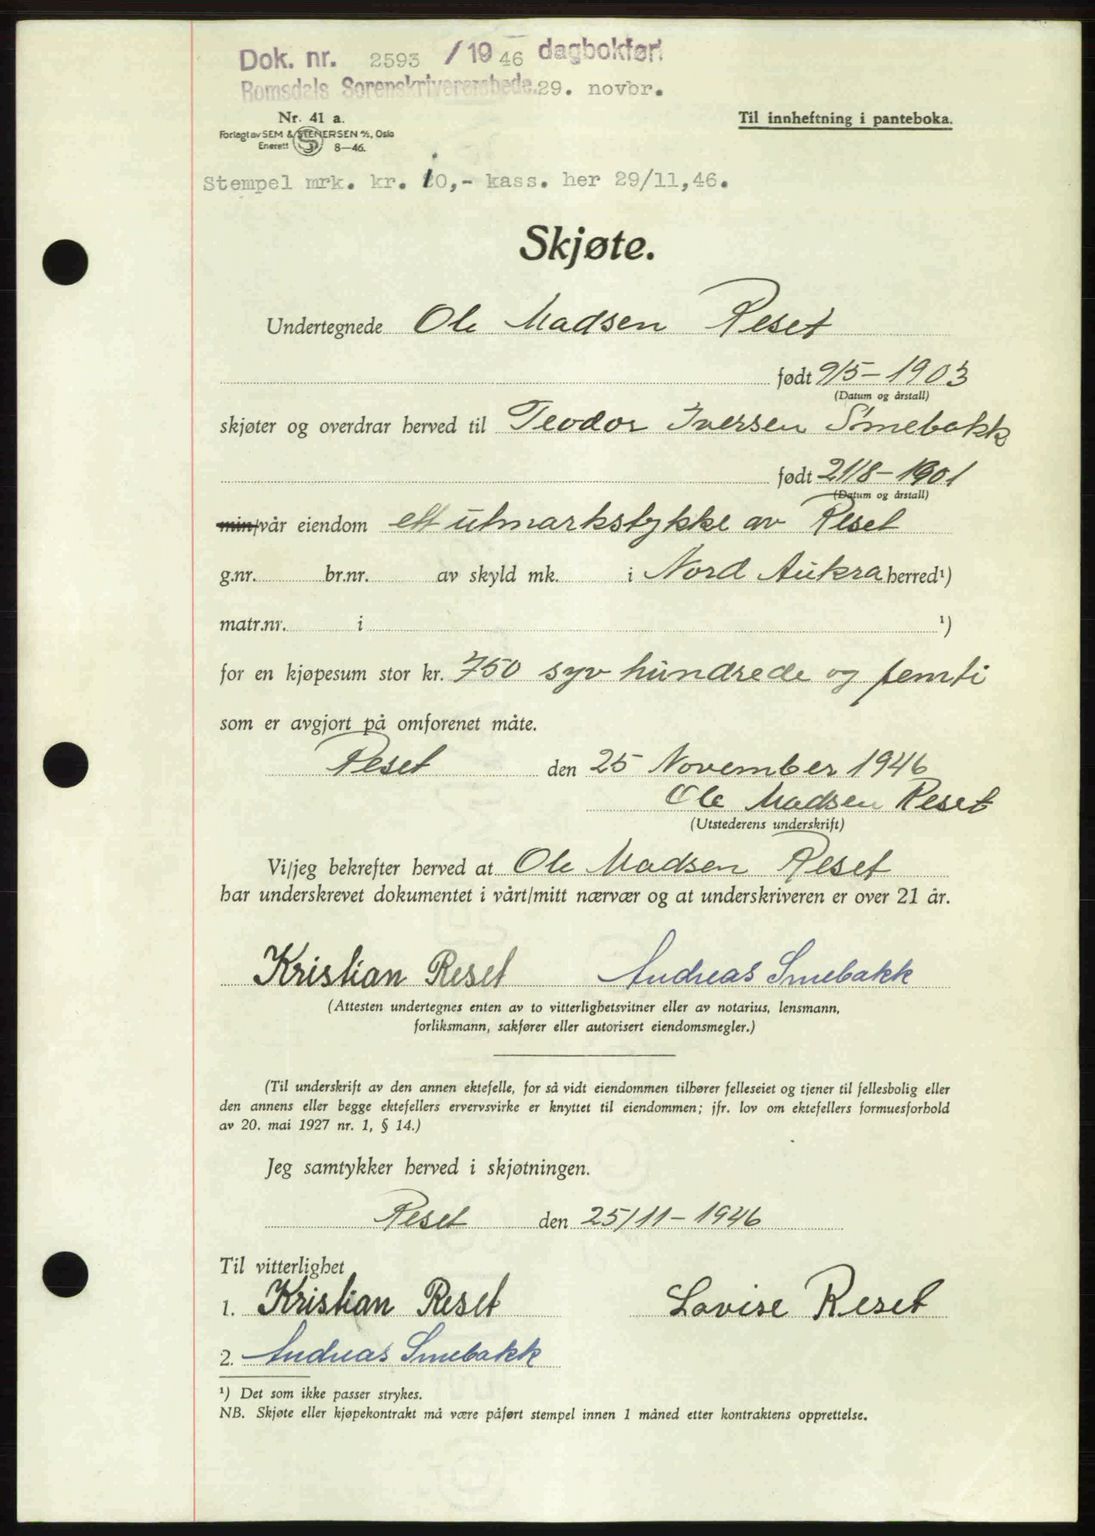 Dok. nr. 2593 /19 46 dagbokført
Romsdals Sorenskriverembede. 29. novbr.
Nr. 41 a.
Til innheftning i panteboka.
Forlagt av SEM & STENERSEN A/S, Oslo
Enerett 8-46.
Stempel mrk. kr. 10,- kass. her 29/11,46.
Skjøte.
Undertegnede Ole Madsen Reset
født 9/5-1903
(Datum og årstall)
skjøter og overdrar herved til Teodor Iversen Smebakk
født 21/8-1901
(Datum og årstall)
min/vår eiendom ett utmarkstykke av Reset
g.nr. br.nr. av skyld mk. i Nord Aukra herred¹)
matr.nr. i ¹)
for en kjøpesum stor kr. 750 syv hundrede og femti
som er avgjort på omforenet måte.
Reset den 25 November 1946
Ole Madsen Reset
(Utstederens underskrift)
Vi/jeg bekrefter herved at Ole Madsen Reset
har underskrevet dokumentet i vårt/mitt nærvær og at underskriveren er over 21 år.
Kristian Reset Andreas Smebakk
(Attesten undertegnes enten av to vitterlighetsvitner eller av notarius, lensmann,
forliksmann, sakfører eller autorisert eiendomsmegler.)
(Til underskrift av den annen ektefelle, for så vidt eiendommen tilhører felleseiet og tjener til fellesbolig eller
den annens eller begge ektefellers ervervsvirke er knyttet til eiendommen; jfr. lov om ektefellers formuesforhold
av 20. mai 1927 nr. 1, § 14.)
Jeg samtykker herved i skjøtningen.
Reset den 25/11-1946
Til vitterlighet
1. Kristian Reset Lovise Reset
2. Andreas Smebakk
¹) Det som ikke passer strykes.
NB. Skjøte eller kjøpekontrakt må være påført stempel innen 1 måned etter kontraktens opprettelse.